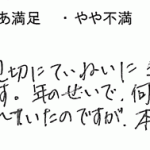 あ満足　・やや不満
切にていねいに
す。年のせいで、何
んでいたのですが、本